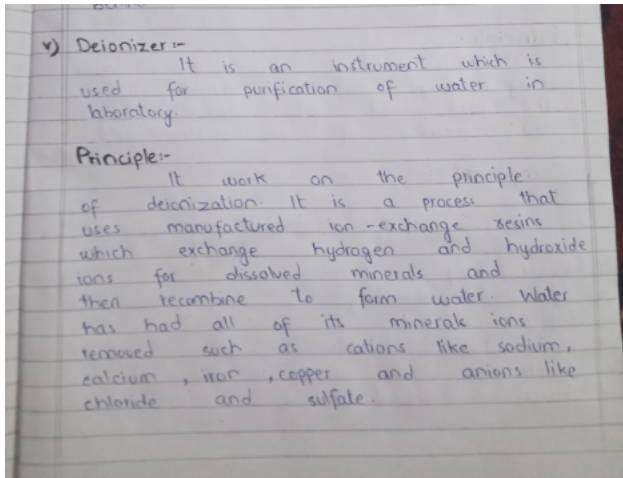 v) Deionizer :-
It is an instrument which is
used for purification of water in
laboratory.
Principle:-
It work on the principle
of deionization. It is a process that
uses manufactured ion-exchange resins
which exchange hydrogen and hydroxide
ions for dissolved minerals and
then recombine to form water. Water
has had all of its minerals ions
removed such as cations like sodium,
calcium, iron, copper and anions like
chloride and sulfate.